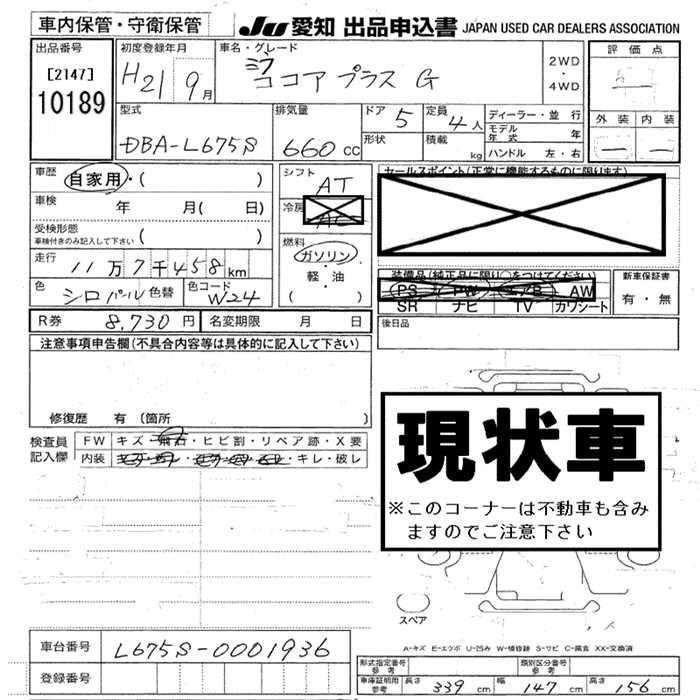 車内保管・守衛保管
JU 愛知 出品申込書 JAPAN USED CAR DEALERS ASSOCIATION
出品番号
[2147]
10189
初度登録年月
H21 9月
車名・グレード
ミラ
ココア プラス G
2WD
・
4WD
評価点
外装 内装
型式
DBA-L675S
排気量
660 cc
ドア 5
形状
定員 4人
積載 kg
ディーラー・並行
モデル年式 年
ハンドル 左・右
車歴 自家用・( )
車検 年 月( 日)
受検形態
車検付きのみ記入して下さい ( )
走行 11万7千458km
色 シロパール 色替 色コード W24
R券 8,730円 名変期限 月 日
シフト AT
冷房 AC
燃料
ガソリン
・
軽・油
( )
セールスポイント(正常に機能するものに限ります)
装備品(純正品に限り○をつけてください)
PS PW エアB AW
SR ナビ TV カワシート
新車保証書
有・無
後日品
注意事項申告欄(不具合内容等は具体的に記入して下さい)
修復歴 有(箇所 )
検査員記入欄
FW キズ・飛石・ヒビ割・リペア跡・X要
内装 キレ・破レ
現状車
※このコーナーは不動車も含み
ますのでご注意下さい
スペア
A-キズ E-エクボ U-凹み W-補修跡 S-サビ C-腐食 XX-交換済
車台番号 L675S-0001936
登録番号
形式指定番号 参考
類別区分番号 参考
車庫証明用 参考 長さ 339 cm 幅 147 cm 高さ 156 cm